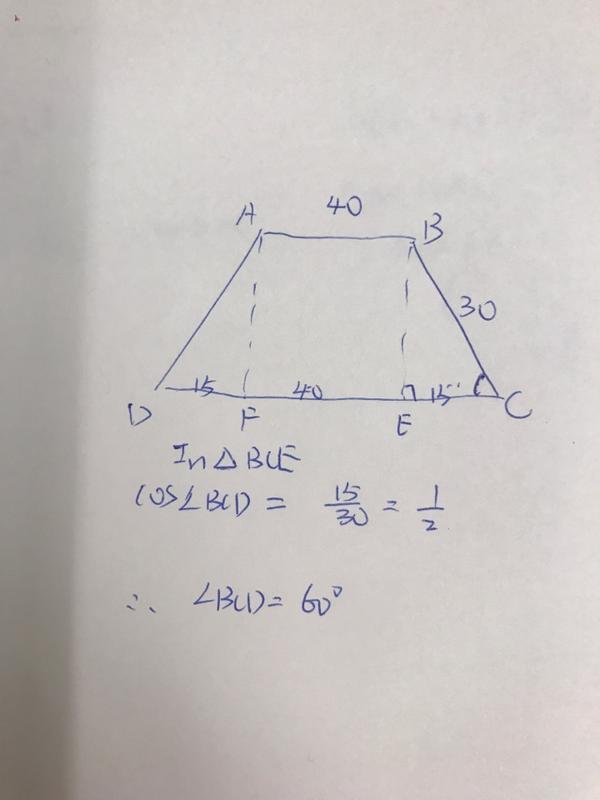 A 40 B
30
D 15 F 40 E 15 C
In △ BCE
cos∠BCD = 15/30 = 1/2
∴ ∠BCD = 60°